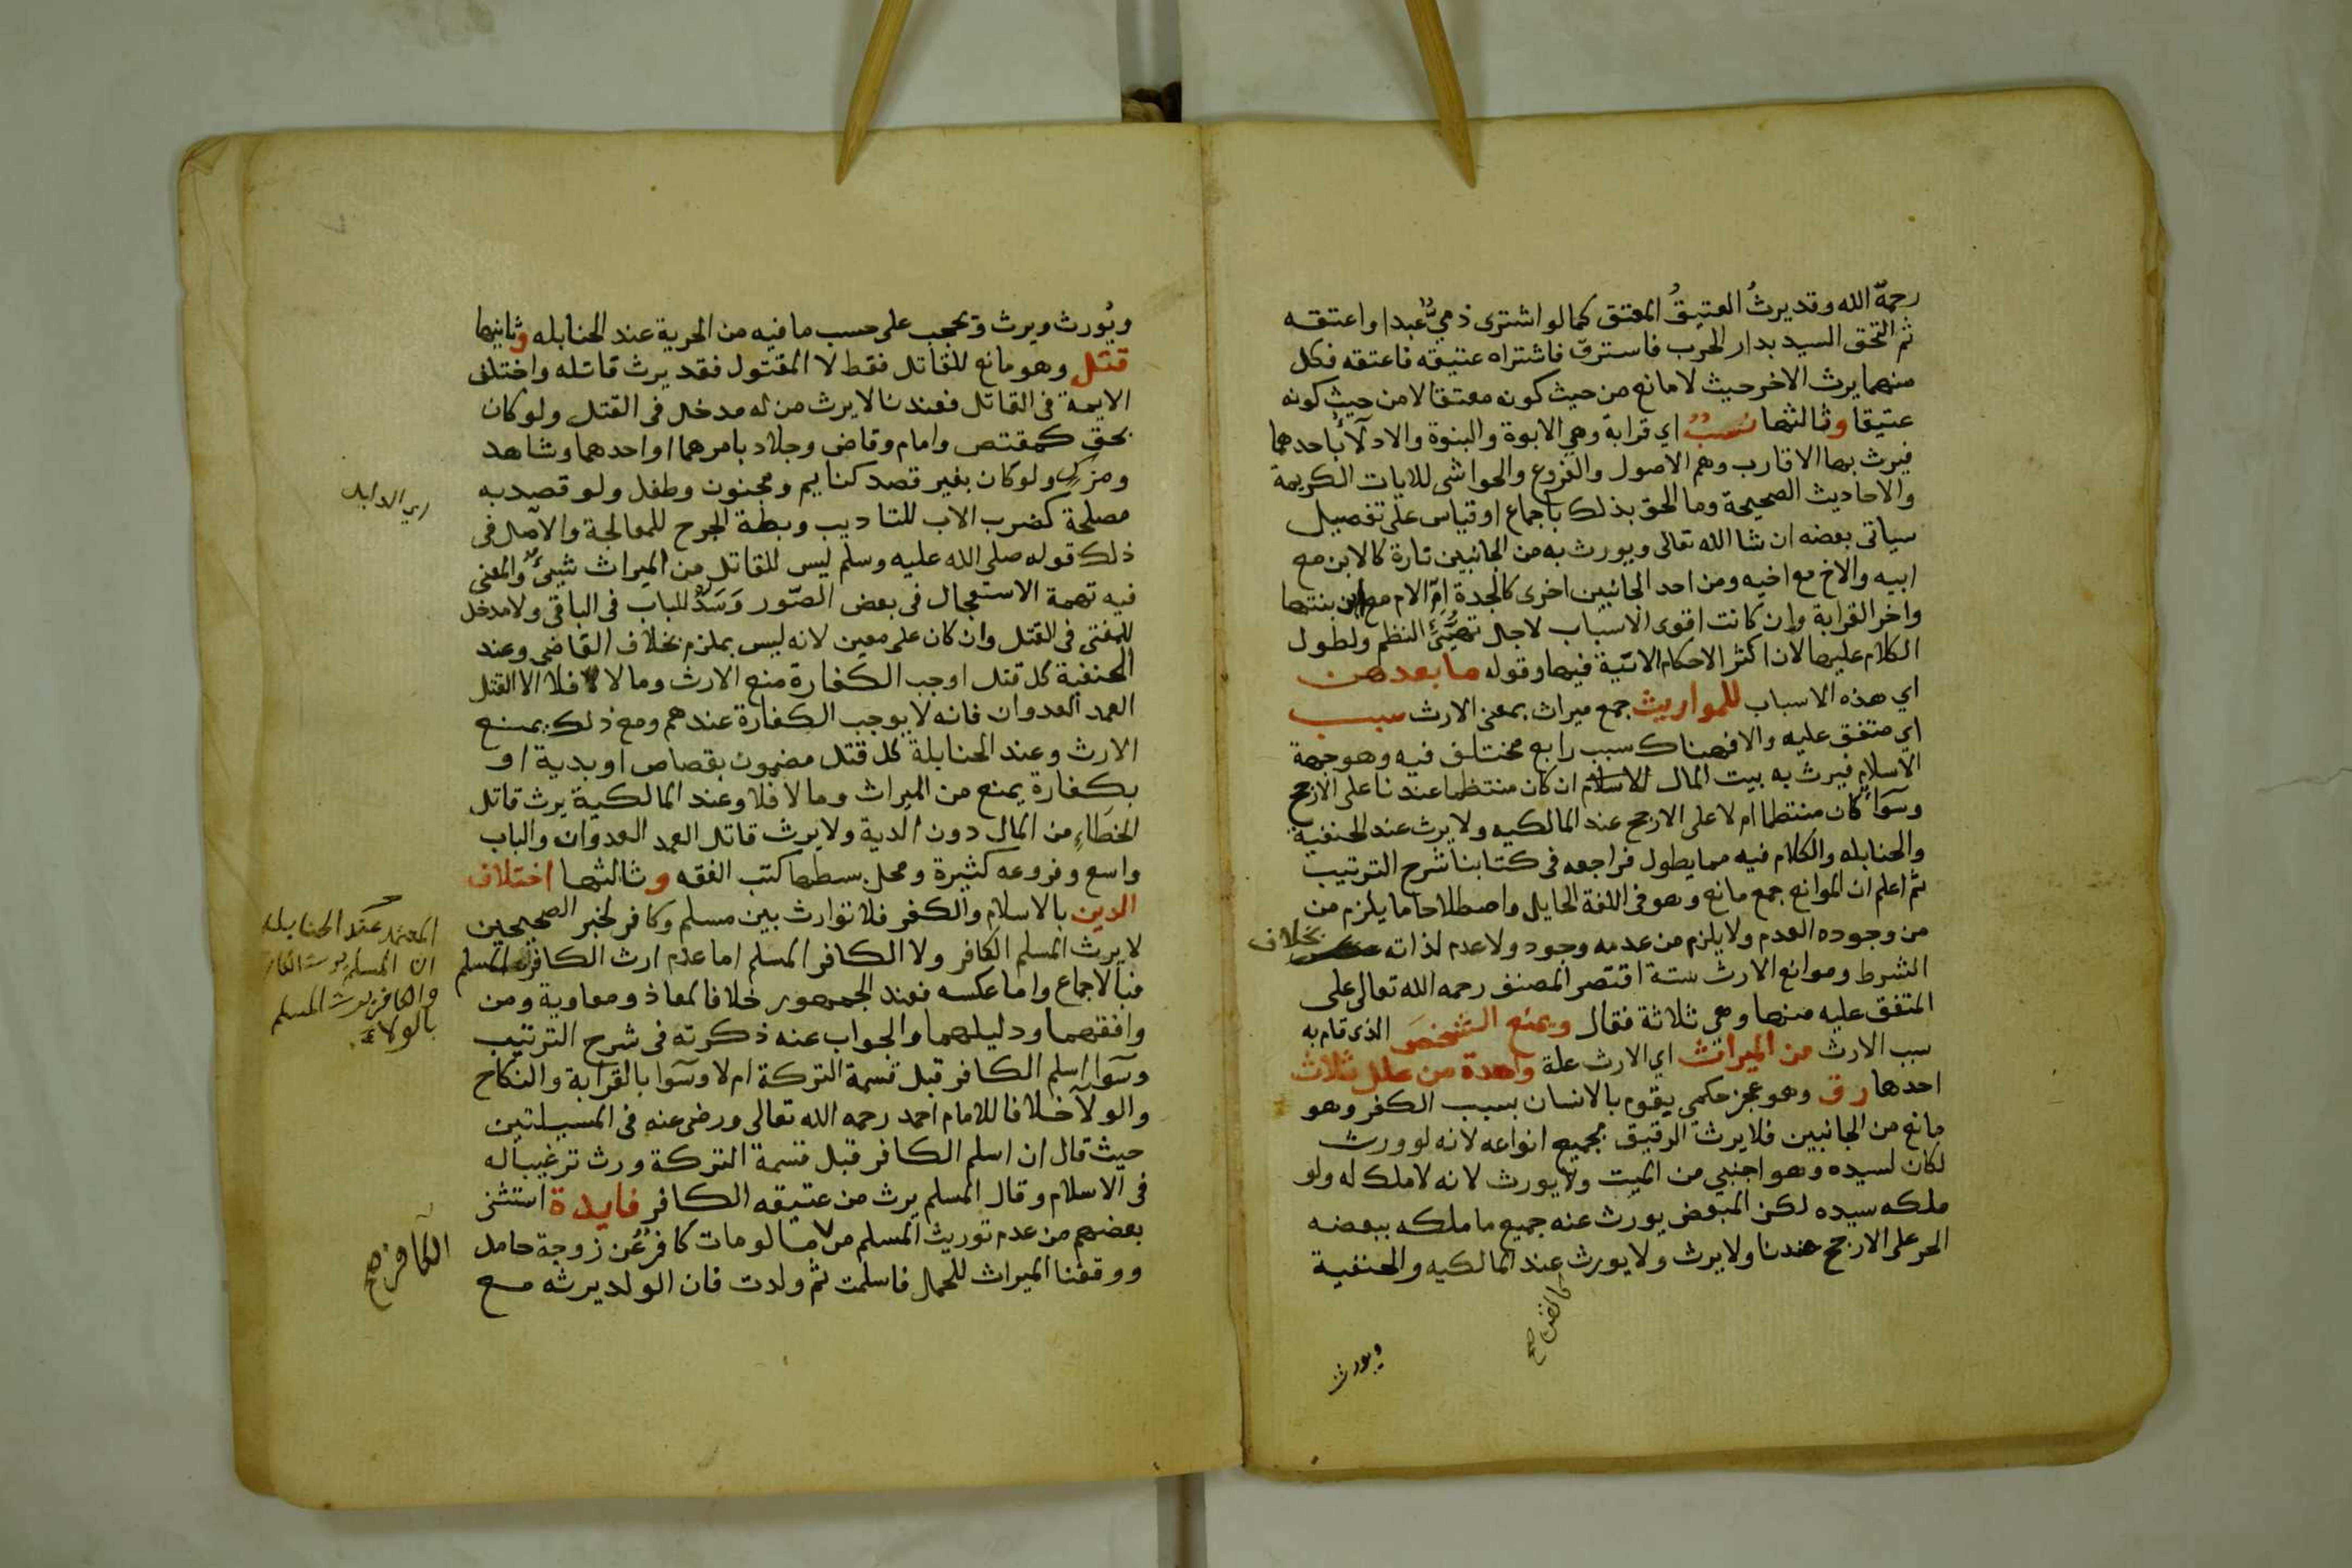 رحمه الله وقد يرث العتيق المعتق كما لو اشترى ذمي عبدا واعتقه
ثم التحق السيد بدار الحرب فاسترق فاشتراه عتيقه فاعتقه فكل
منهما يرث الاخر حيث لا مانع من حيث كونه معتقا لا من حيث كونه
عتيقا وثالثها نسب اي قرابة وهي الابوة والبنوة والادلآ باحدهما
فيرث بها الاقارب وهم الاصول والفروع والحواشى للايات الكريمة
والاحاديث الصحيحة وما الحق بذلك باجماع او قياس على تفصيل
سياتى بعضه ان شا الله تعالى ويورث به من الجانبين تارة كالابن مع
ابيه والاخ مع اخيه ومن احد الجانبين اخرى كالجدة ام الام مع ابن بنتها
واخر القرابة وان كانت اقوى الاسباب لاجل تهيئ النظم ولطول
الكلام عليها لان اكثر الاحكام الاتية فيها وقوله ما بعدهن
اي هذه الاسباب للمواريث جمع ميراث بمعنى الارث سبب
اي متفق عليه والا فهناك سبب رابع مختلف فيه وهو جهة
الاسلام فيرث به بيت المال الاسلام ان كان منتظما عندنا على الارجح
وسوآ كان منتظما ام لا على الارجح عند المالكيه ولا يرث عند الحنفية
والحنابله والكلام فيه مما يطول فراجعه فى كتابنا شرح الترتيب
ثم اعلم ان الموانع جمع مانع وهو فى اللغة الحايل واصطلاحا ما يلزم من
من وجوده العدم ولا يلزم من عدمه وجود ولا عدم لذاته عكس بخلاف
الشرط وموانع الارث ستة اقتصر المصنف رحمه الله تعالى على
المتفق عليه منها وهي ثلاثة فقال ويمنع الشخص الذى قام به
سبب الارث من الميراث اي الارث علة واحدة من علل ثلاث
احدها رق وهو عجز حكمي يقوم بالانسان بسبب الكفر وهو
مانع من الجانبين فلا يرث الرقيق بجميع انواعه لانه لو ورث
لكان لسيده وهو اجنبي من الميت ولا يورث لانه لا ملك له ولو
ملكه سيده لكن المبعض يورث عنه جميع ما ملكه ببعضه
الحر على الارجح عندنا ولا يرث ولا يورث عند المالكيه والحنفية
كالقن صح
ويورث
ويورث ويرث ويحجب على حسب ما فيه من الحرية عند الحنابله وثانيها
قتل وهو مانع للقاتل فقط لا المقتول فقد يرث قاتله واختلف
الايمة فى القاتل فعندنا لا يرث من له مدخل فى القتل ولو كان
بحق كمقتص وامام وقاض وجلاد بامرهما او احدهما وشاهد
ومزكٍ ولو كان بغير قصد كنايم ومجنون وطفل ولو قصد به
مصلحة كضرب الاب للتاديب وبطه الجرح للمعالجة والاصل فى
اي الدليل
ذلك قوله صلى الله عليه وسلم ليس للقاتل من الميراث شيئ والمعنى
فيه تهمة الاستعجال فى بعض الصور وسدا للباب فى الباقى ولا مدخل
للمفتى فى القتل وان كان على معين لانه ليس بملزم بخلاف القاضى وعند
الحنفية كل قتل اوجب الكفارة منع الارث وما لا فلا الا القتل
العمد العدوان فانه لا يوجب الكفارة عندهم ومع ذلك يمنع
الارث وعند الحنابلة كل قتل مضمون بقصاص او بدية او
بكفارة يمنع من الميراث وما لا فلا وعند المالكية يرث قاتل
الخطاءِ من المال دون الدية ولا يرث قاتل العمد العدوان والباب
واسع وفروعه كثيرة ومحل بسطها كتب الفقه وثالثها اختلاف
الدين بالاسلام والكفر فلا توارث بين مسلم وكافر لخبر الصحيحين
لا يرث المسلم الكافر ولا الكافر المسلم اما عدم ارث الكافر المسلم
فبالاجماع واما عكسه فعند الجمهور خلافا لمعاذ ومعاوية ومن
وافقهما ودليلهما والجواب عنه ذكرته فى شرح الترتيب
المعتمد عند الحنابله
ان المسلم يرث الكافر
والكافر يرث المسلم
بالولاء.
وسوآ اسلم الكافر قبل قسمة التركة ام لا وسوآ بالقرابة والنكاح
والولآ خلافا للامام احمد رحمه الله تعالى ورضى عنه فى المسيلتين
حيث قال ان اسلم الكافر قبل قسمة التركة ورث ترغيبا له
فى الاسلام وقال المسلم يرث من عتيقه الكافر فايدة استثنى
بعضهم من عدم توريث المسلم من ما لو مات كافر عن زوجة حامل
الكافر صح
ووقفنا الميراث للحمل فاسلمت ثم ولدت فان الولد يرثه مع